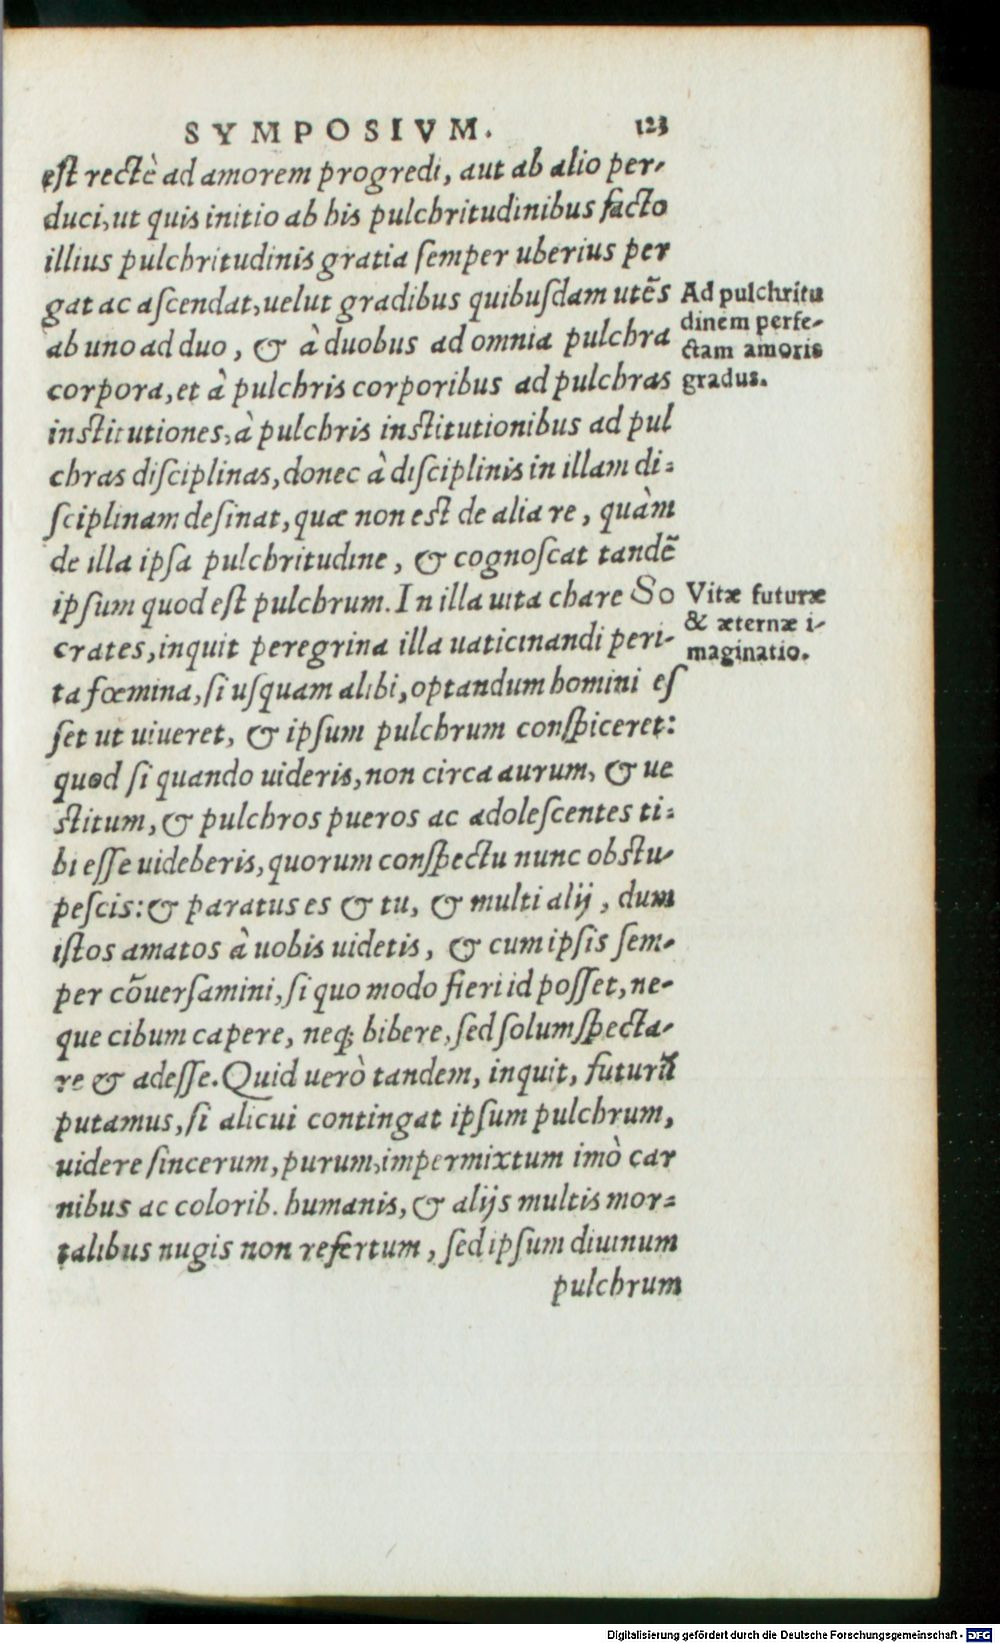 SYMPOSIVM. 123
est rectè ad amorem progredi, aut ab alio per-
duci, ut quis initio ab his pulchritudinibus facto
illius pulchritudinis gratia semper uberius per
gat ac ascendat, uelut gradibus quibusdam utẽs
ab uno ad duo, & à duobus ad omnia pulchra
corpora, et à pulchris corporibus ad pulchras
institutiones, à pulchris institutionibus ad pul
chras disciplinas, donec à disciplinis in illam di-
sciplinam desinat, quæ non est de alia re, quàm
de illa ipsa pulchritudine, & cognoscat tandẽ
ipsum quod est pulchrum. In illa uita chare So
crates, inquit peregrina illa uaticinandi peri-
ta fœmina, si usquam alibi, optandum homini es
set ut uiueret, & ipsum pulchrum conspiceret:
quod si quando uideris, non circa aurum, & ue
stitum, & pulchros pueros ac adolescentes ti-
bi esse uideberis, quorum conspectu nunc obstu-
pescis: & paratus es & tu, & multi alij, dum
istos amatos à uobis uidetis, & cum ipsis sem-
per cõuersamini, si quo modo fieri id posset, ne-
que cibum capere, neq; bibere, sed solum specta-
re & adesse. Quid uerò tandem, inquit, futurũ
putamus, si alicui contingat ipsum pulchrum,
uidere sincerum, purum, impermixtum imò car
nibus ac colorib. humanis, & alijs multis mor-
talibus nugis non refertum, sed ipsum diuinum
pulchrum
Ad pulchritu
dinem perfe-
ctam amoris
gradus.
Vitæ futuræ
& æternæ i-
maginatio.
Digitalisierung gefördert durch die Deutsche Forschungsgemeinschaft - DFG